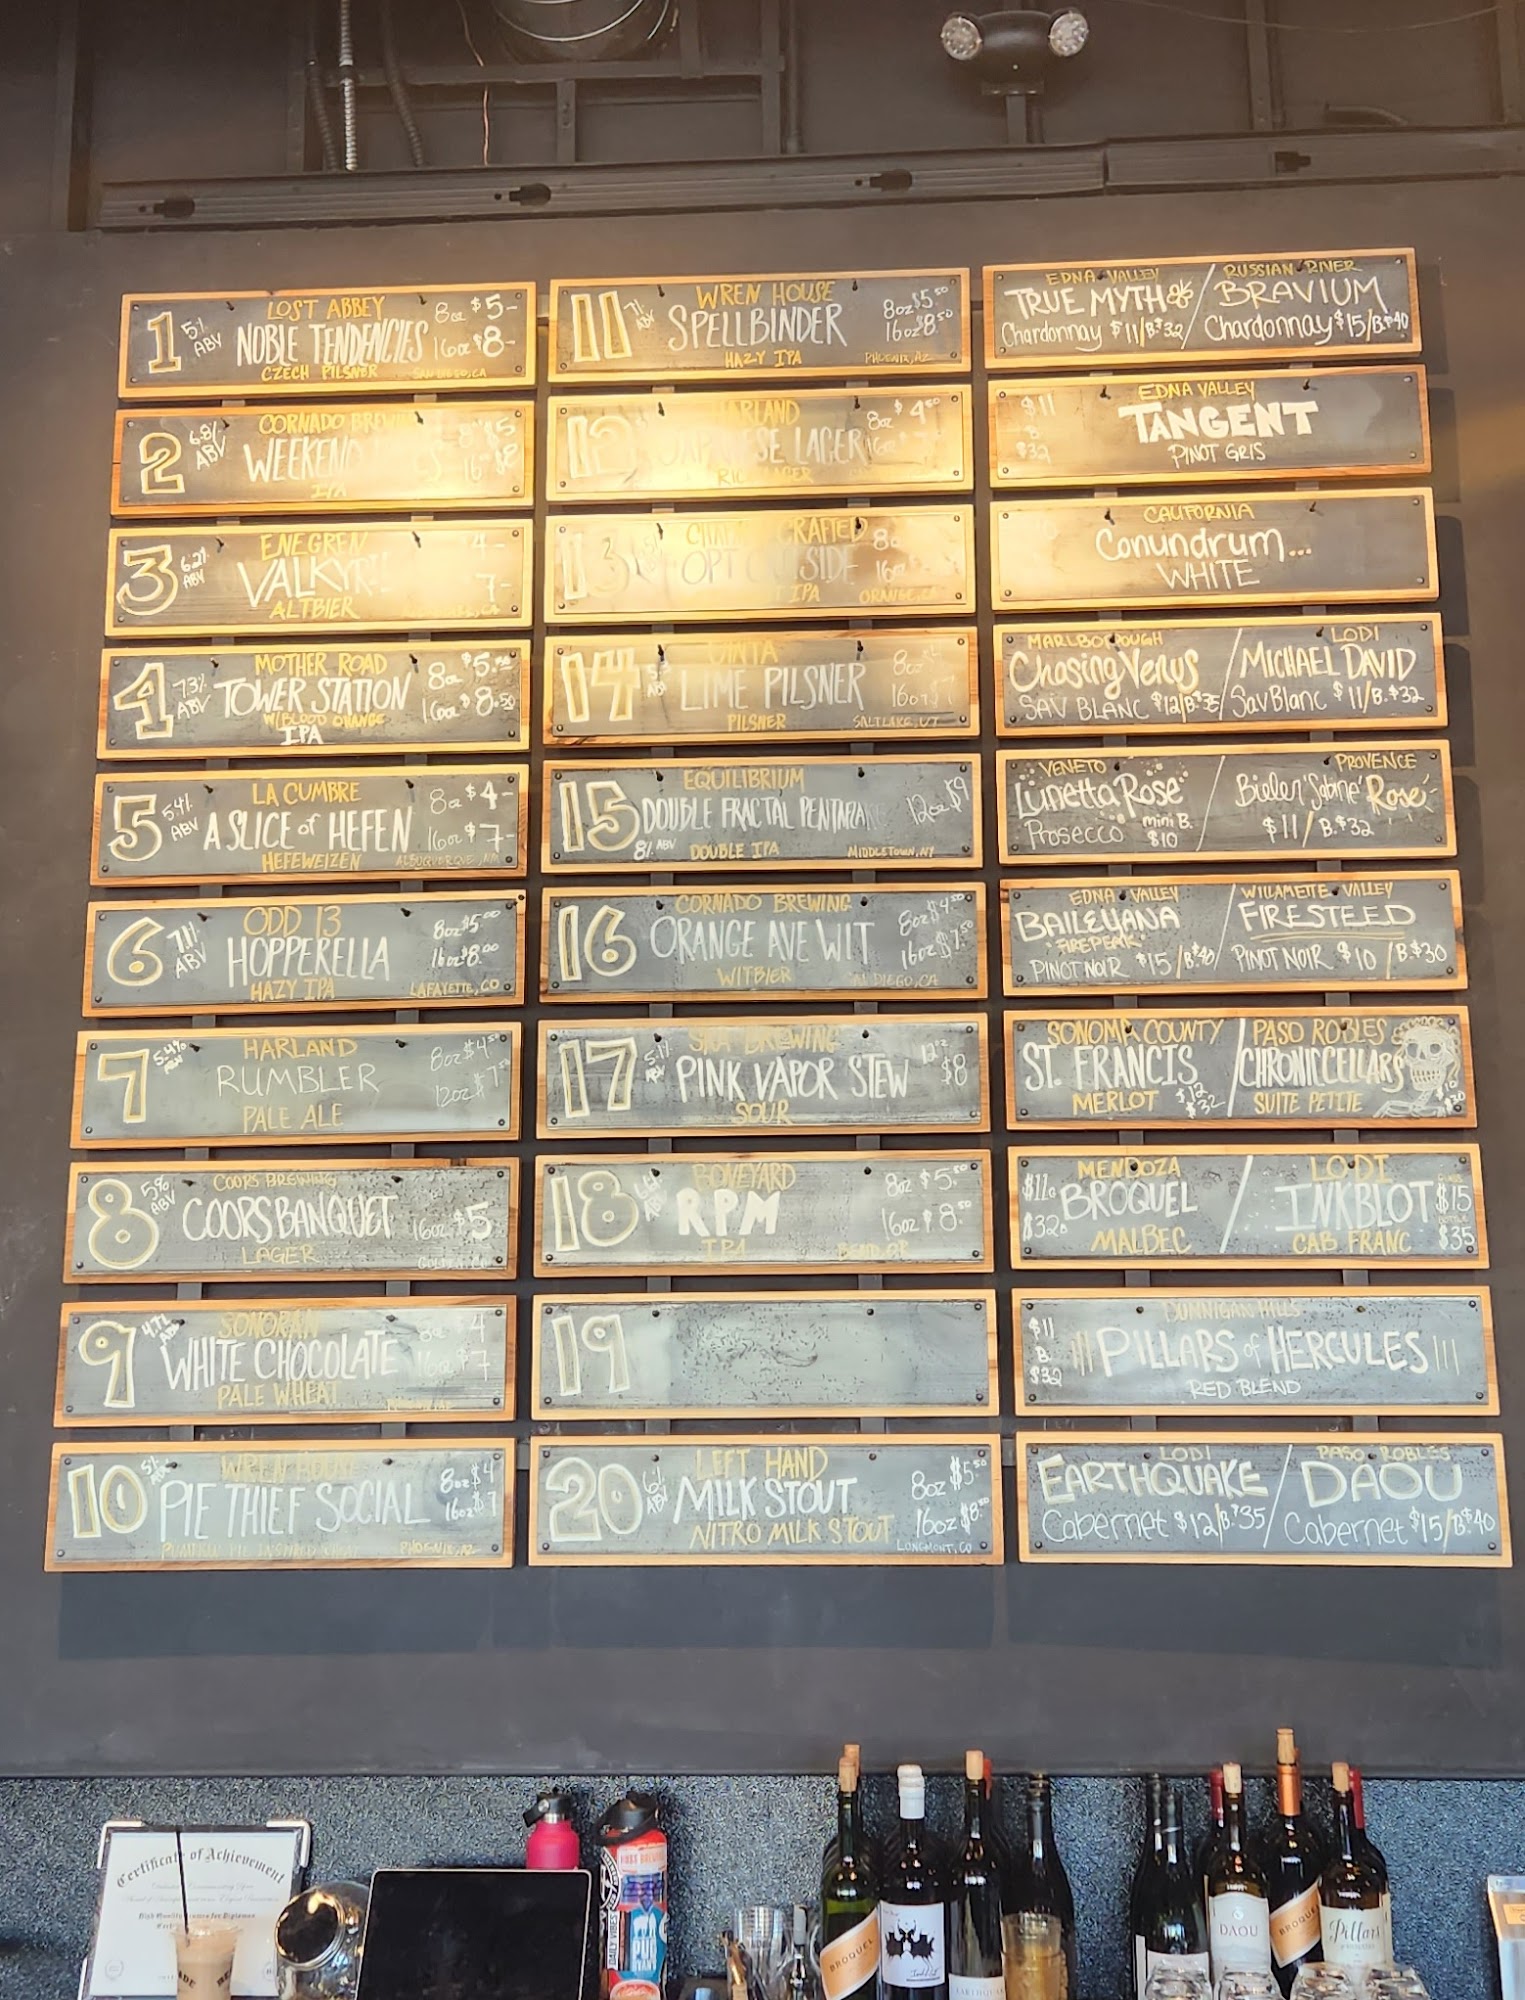 1 5% ABV
LOST ABBEY 8oz $5-
NOBLE TENDENCIES 16oz $8-
CZECH PILSNER SAN DIEGO, CA
2 6.8% ABV
CORNADO BREWING $5
WEEKEND 16 $8
IPA
3 6.2% ABV
ENEGREN 4-
VALKYR 7-
ALTBIER CA
4 7.3% ABV
MOTHER ROAD 8oz $5.50
TOWER STATION 16oz $8.50
W/BLOOD ORANGE
IPA
5 5.4% ABV
LA CUMBRE 8oz $4-
A SLICE of HEFEN 16oz $7-
HEFEWEIZEN ALBUQUERQUE, NM
6 7.1% ABV
ODD 13 8oz $5.00
HOPPERELLA 16oz $8.00
HAZY IPA LAFAYETTE, CO
7 5.4% ABV
HARLAND 8oz $4.50
RUMBLER 12oz $7.50
PALE ALE
8 5% ABV
COORS BREWING
COORS BANQUET 16oz $5
LAGER GOLDEN, CO
9 4.7%
SONORAN 8oz $4
WHITE CHOCOLATE 16oz $7
PALE WHEAT
10 5% ABV
WREN HOUSE 8oz $4
PIE THIEF SOCIAL 16oz $7
PUMPKIN PIE INSPIRED PHOENIX, AZ
11 7% ABV
WREN HOUSE 8oz $5.50
SPELLBINDER 16oz $8.50
HAZY IPA PHOENIX, AZ
12
HARLAND 8oz $4.50
JAPANESE LAGER 16oz
RICE LAGER
13
CRAFTED
OPT SIDE 16oz
IPA ORANGE, CA
14
UINTA 8oz $4
LIME PILSNER 16oz $7
PILSNER SALT LAKE, UT
15 8% ABV
EQUILIBRIUM
DOUBLE FRACTAL 12oz $9
DOUBLE IPA MIDDLETOWN, NY
16
CORNADO BREWING 8oz $4.50
ORANGE AVE WIT 16oz $7.50
WITBIER SAN DIEGO, CA
17 5.1% ABV
SKA BREWING 12oz
PINK VAPOR STEW $8
SOUR
18
BONEYARD 8oz $5.50
RPM 16oz $8.50
IPA BEND, OR
19
20 6% ABV
LEFT HAND 8oz $5.50
MILK STOUT 16oz $8.50
NITRO MILK STOUT LONGMONT, CO
EDNA VALLEY / RUSSIAN RIVER
TRUE MYTH / BRAVIUM
Chardonnay $11/B.$32 / Chardonnay $15/B.$40
$11 EDNA VALLEY
B TANGENT
$32 PINOT GRIS
CALIFORNIA
Conundrum...
WHITE
MARLBOROUGH / LODI
Chasing Venus / MICHAEL DAVID
SAV BLANC $12/B.$35 / Sav Blanc $11/B.$32
VENETO / PROVENCE
Lunetta Rosé / Bieler 'Sabine' Rosé
Prosecco mini B. $10 / $11/B.$32
EDNA VALLEY / WILLAMETTE VALLEY
BAILEYANA / FIRESTEED
"FIREPEAK"
PINOT NOIR $15/B.$40 / PINOT NOIR $10/B.$30
SONOMA COUNTY / PASO ROBLES
ST. FRANCIS / CHRONIC CELLARS
MERLOT $12 $32 / SUITE PETITE $10 $30
MENDOZA / LODI
$11 BROQUEL / INKBLOT $15
$32 MALBEC / CAB FRANC $35
DUNNIGAN HILLS
$11 B $32
PILLARS of HERCULES
RED BLEND
LODI / PASO ROBLES
EARTHQUAKE / DAOU
Cabernet $12/B.$35 / Cabernet $15/B.$40
Certificate of Achievement
DAILY VIBES
PUB
BROQUEL
DAOU
BROQUEL
Pillars